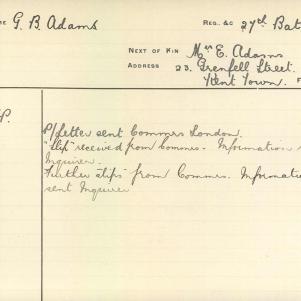 ME G. B. Adams REG. &C 27th Bat
NEXT OF KIN Mrs E. Adams
ADDRESS 23. Grenfell Street.
Kent Town. F
P.
P/Letter sent Commrs London.
"Slip" received from Commrs. Information s
Inquirer.
Further "slips" from Commrs. Informatio
sent Inquirer